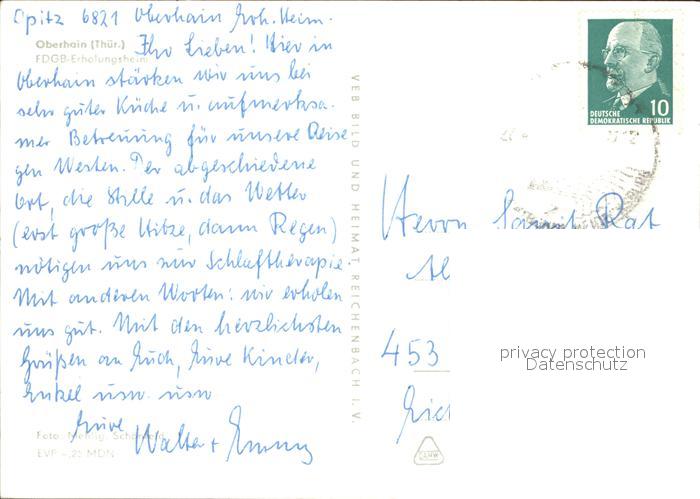 Opitz 6821 Oberhain Erh. Heim.
Oberhain (Thür.)
FDGB-Erholungsheim
Ihr Lieben! Hier in
Oberhain stärken wir uns bei
sehr guter Küche u. aufmerksa-
mer Betreuung für unsere Reise
gen Westen. Der abgeschiedene
Ort, die Stille u. das Wetter
(erst große Hitze, dann Regen)
nötigen uns zur Schlaftherapie.
Mit anderen Worten: wir erholen
uns gut. Mit den herzlichsten
Grüßen an Euch, Eure Kinder,
Enkel usw. usw
Eure
Walter +
Foto
EVP –,25 MDN
VEB BILD UND HEIMAT REICHENBACH I. V.
10
DEUTSCHE
DEMOKRATISCHE REPUBLIK
Herrn Sanit Rat
453
privacy protection
Datenschutz